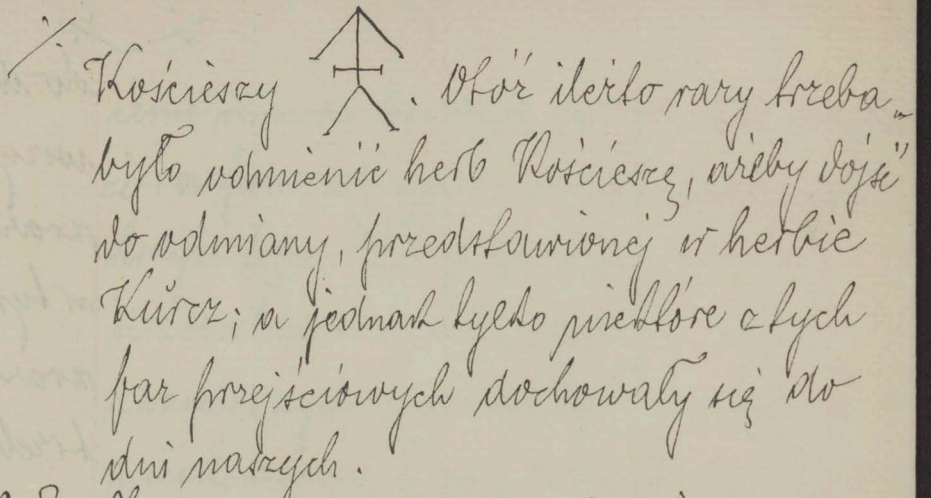 Kościeszy . Otóż ileżto razy trzeba„
było odmienić herb Kościeszę, ażeby dojść
do odmiany, przedstawionej w herbie
Kurcz; a jednak tylko niektóre z tych
faz przejściowych dochowały się do
dni naszych.